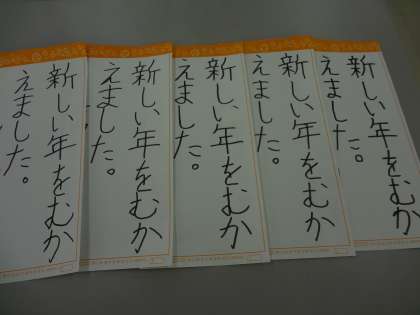 新しい年をむか
えました。
新しい年をむか
えました。
新しい年をむか
えました。
新しい年をむか
えました。
新しい年をむか
えました。